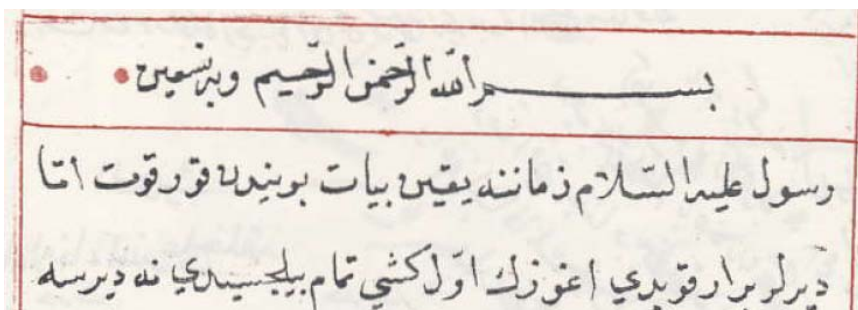 بسم الله الرحمن الرحيم وبه نستعين
رسول عليه السلام زماننه يقين بيات بويندن قورقوت اتا
ديرلر بر ار قوپدي اغوزك اول كشي تمام بيلجسيدي نه ديرسه